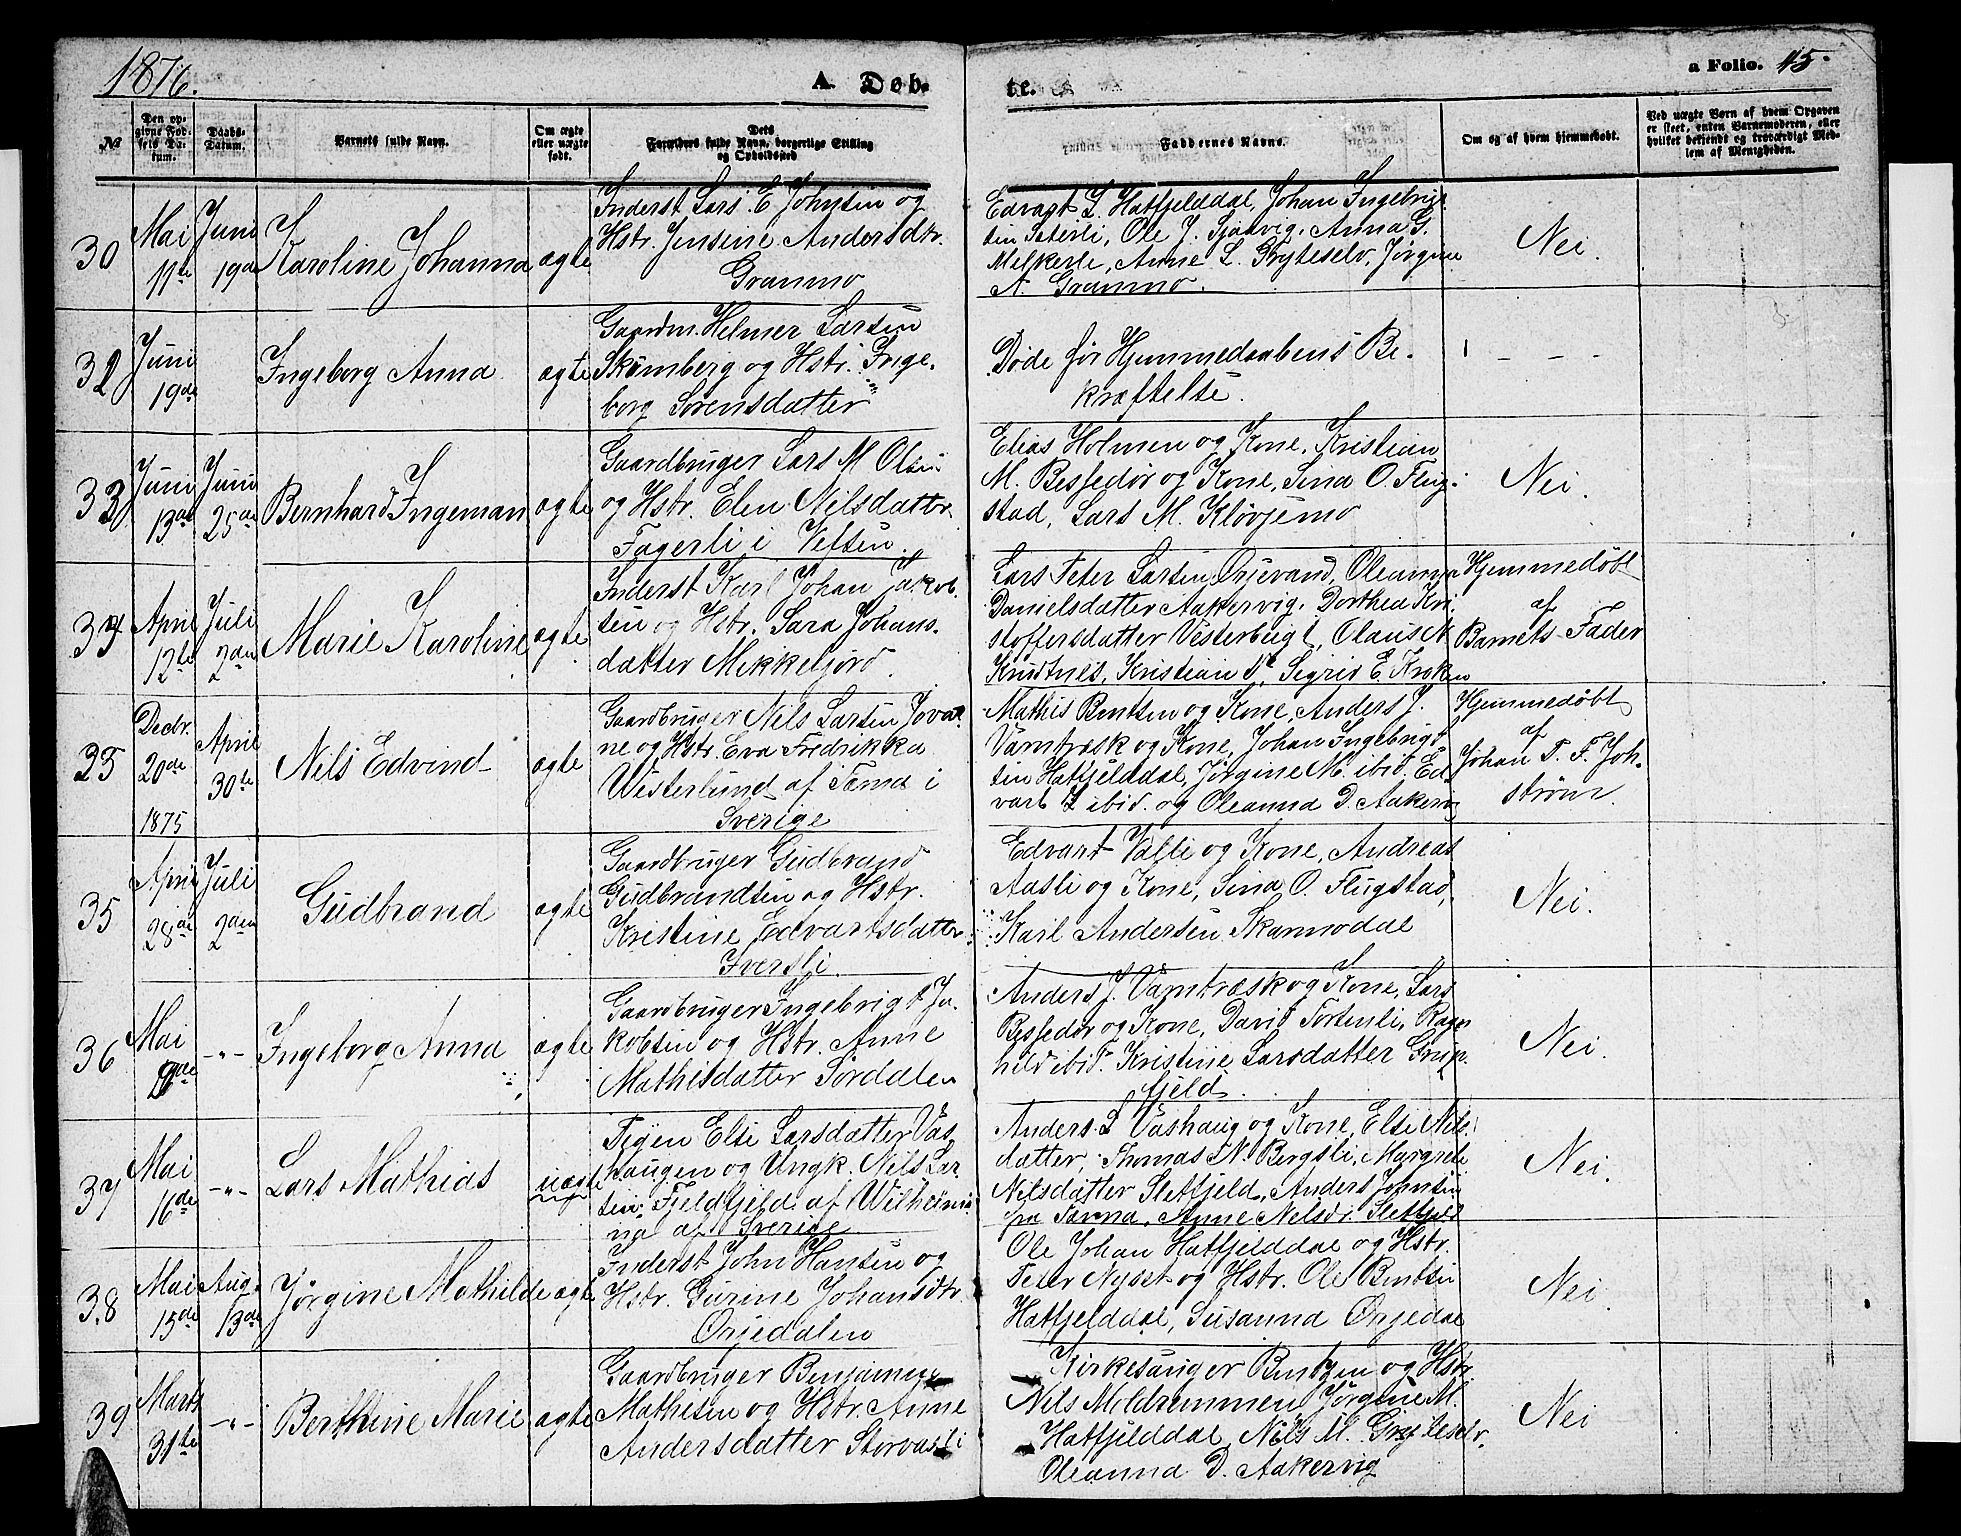 1876.
A. Døb-
te.
a Folio. 45.
№
Den opgivne Fødsels Datum.
Daabs-Datum.
Barnets fulde Navn.
Om ægte eller uægte født.
Dets Forældres fulde Navn, borgerlige Stilling og Opholdssted
Faddernes Navne.
Om og af hvem hjemmedøbt.
Ved uægte Børn af hvem Opgaven er skeet, enten Barnemoderen, eller hvilket bekjendt og troværdigt Medlem af Menigheden.
30
Mai
11te
Juni
19de
Karoline Johanna
ægte
Inderst Lars E Johnsen og
Hstr. Jensine Andersdtr.
Granmo
Edvart L. Hatfjelddal, Johan Ingebrigt
sen Sæterli, Ole J. Sjaavig, Anna G.
Melkerli, Anne L. Gryteselv, Jørgine
A. Granmo.
Nei.
32
Juni
19de
Ingeborg Anna
ægte
Gaardm. Helmer Larsen
Skømberg og Hstr. Inge-
borg Sørensdatter
Døde før Hjemmedaabens Be-
kræftelse.
33
Juni
13de
Juni
25de
Bernhard Ingeman
ægte
Gaardbruger Lars M Olsen
og Hstr. Elen Nilsdatter
Fagerli i Vefsen.
Elias Holmen og Kone, Kristian
M. Bessedør og Kone, Sina O. Flug-
stad, Lars M. Kløvjemo
Nei.
34
April
12te
Juli
2den
Marie Karoline
ægte
Inderst Karl Johan Jakob-
sen og Hstr. Sara Johans-
datter Mikkeljord.
Lars Peter Larsen Ørjevand, Oleanna
Danielsdatter Aakervig, Dorthea Kri-
stoffersdatter Vesterbugt, Olaus N
Krudtnes, Kristian N, Sigrid E Kroken
Hjemmedøbt
af
Barnets Fader
25
Decbr.
20de
1875
April
30te
Nils Edvind
ægte
Gaardbruger Nils Larsen Jovat-
ne og Hstr. Eva Fredrikka
Westerlund af Tærna i
Sverige
Mathis Bentsen og Kone, Anders J.
Vamtræsk og Kone, Johan Ingebrigt-
sen Hatfjelddal, Jørgine M. ibid. Ed-
vart L ibid. og Oleanna D. Aakervig
Hjemmedøbt
af
Johan P. F. Joh-
strøm.
35
April
28de
Juli
2den
Gudbrand
ægte
Gaardbruger Gudbrand
Gudbrandsen og Hstr.
Kristine Edvartsdatter
Iversli.
Edvart Valli og Kone, Andreas
Aasli og Kone, Sina O. Flugstad,
Karl Andersen Skarmodal
Nei.
36
Mai
-"-
Ingeborg Anna
ægte
Gaardbruger Ingebrigt Ja-
kobsen og Hstr. Anne
Mathisdatter Sørdalen
Anders J. Vamtræsk og Kone, Lars
Bessedør og Kone, David Tortenli, Ragn
hild ibid. Kristine Larsdatter Grup-
fjeld.
Nei.
37
Mai
16de
-"-
Lars Mathias
uægte
Pigen Else Larsdatter Vas-
haugen og Ungk. Nils Lar-
sen Fjeldfjeld af Wilhelmi-
na af Sverige
Anders L Vashaug og Kone, Else Nils-
datter, Thomas N. Bergsli, Margrete
Nilsdatter Sletfjeld, Anders Johnsen
fra Tærna, Anne Nelsdr. Sletfjeld
Nei.
38
Mai
15de
Aug.
13de
Jørgine Mathilde
ægte
Inderst John Hansen og
Hstr. Gurine Johansdtr.
Ørjedalen
Ole Johan Hatfjelddal og Hstr.
Peter Nyset og Hstr. Ole Bentsen
Hatfjelddal, Susanna Ørjedal
Nei.
39
Marts
31te
-"-
Berthine Marie
ægte
Gaardbruger Benjamin
Mathisen og Hstr. Anne
Andersdatter Storvasli
Kirkesanger Bentzen og Hstr
Nils Moldremmen, Jørgine M.
Hatfjelddal, Nils M. Gryteselv,
Oleanna D. Aakervig
Nei